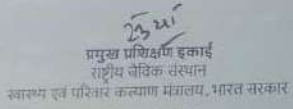 प्रमुख प्रशिक्षण इकाई
राष्ट्रीय जैविक संस्थान
स्वास्थ्य एवं परिवार कल्याण मंत्रालय, भारत सरकार